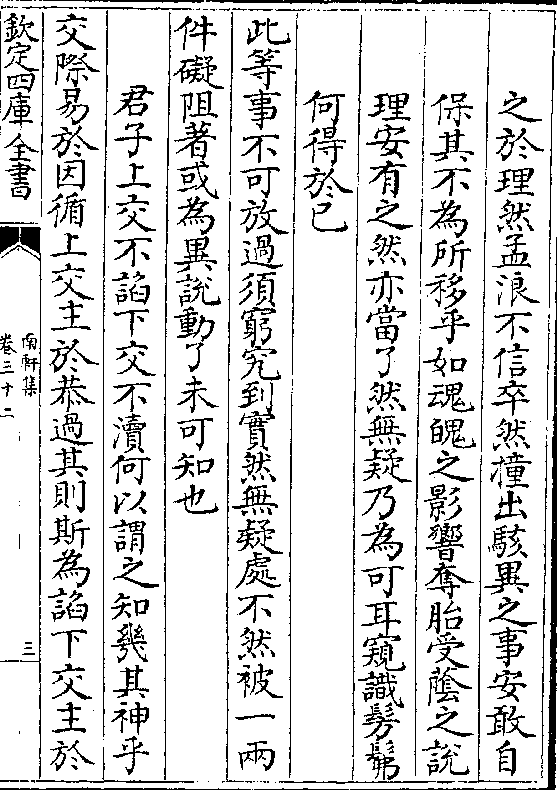 之於理然孟浪不信卒然撞出駭異之事安敢自
保其不為所移乎如魂魄之影響奪胎受蔭之說
理安有之然亦當了然無疑乃為可耳窺識髣髴
何得於已
此等事不可放過須窮究到實然無疑處不然被一兩
件礙阻著或為異說動了未可知也
君子上交不諂下交不瀆何以謂之知幾其神乎
交際易於因循上交主於恭過其則斯為諂下交主於
欽定四庫全書
南軒集
卷三十二
三